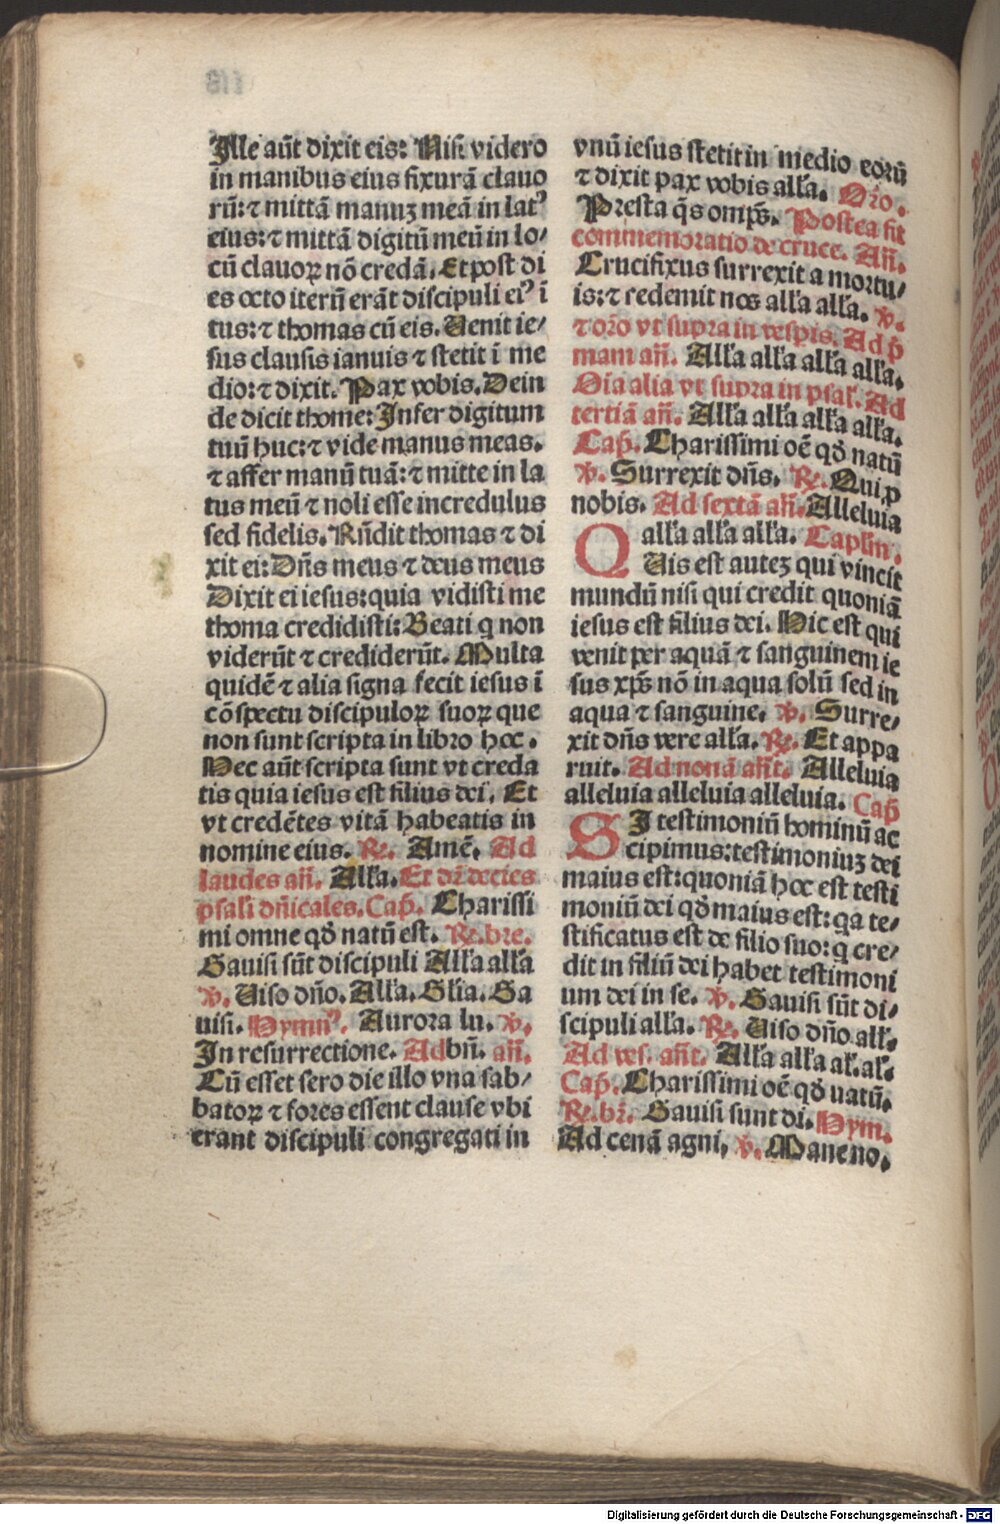 Ille aūt dixit eis: Nisi videro
in manibus eius fixurā clauo
rū: ⁊ mittā manuʒ meā in latꝰ
eius: ⁊ mittā digitū meū in lo⸗
cū clauoꝝ nō credā. Et post di
es octo iterū erāt discipuli eiꝰ ī
tus: ⁊ thomas cū eis. Uenit ie⸗
sus clausis ianuis ⁊ stetit ī me
dio: ⁊ dixit. Pax vobis. Dein
de dicit thome: Infer digitum
tuū huc: ⁊ vide manus meas.
⁊ affer manū tuā: ⁊ mitte in la
tus meū ⁊ noli esse incredulus
sed fidelis. Rn̄dit thomas ⁊ di
xit ei: Dn̄s meus ⁊ deus meus
Dixit ei iesus: quia vidisti me
thoma credidisti: Beati q non
viderūt ⁊ crediderūt. Multa
quidē ⁊ alia signa fecit iesus ī
cōspectu discipuloꝝ suoꝝ que
non sunt scripta in libro hoc.
Hec aūt scripta sunt vt creda
tis quia iesus est filius dei. Et
vt credētes vitā habeatis in
nomine eius. ℟. Amē. Ad
laudes an̄. Alła. Et dr̄ decies
psalī dn̄icales. Cap̄. Charissi
mi omne qd̄ natū est. ℟. bre.
Gauisi sūt discipuli Alła alła
℣. Uiso dn̄o. Alła. Glia. Ga
uisi. Hymnꝰ. Aurora lu. ℣.
In resurrectione. Ad bn̄. an̄.
Cū esset sero die illo vna sab⸗
batoꝝ ⁊ fores essent clause vbi
erant discipuli congregati in
vnū iesus stetit in medio eorū
⁊ dixit pax vobis alła. Oro.
Presta q̄s omp̄s. Postea fit
commemoratio de cruce. An̄.
Crucifixus surrexit a mortu⸗
is: ⁊ redemit nos alła alła. ℣.
⁊ oro vt supra in vespis. Ad p̄
mam an̄. Alła alła alła alła.
Oīa alia vt supra in psał. Ad
tertiā an̄. Alła alła alła alła.
Cap̄. Charissimi oē qd̄ natū
℣. Surrexit dn̄s. ℟. Qui ꝓ
nobis. Ad sextā an̄. Alleluia
alła alła alła. Caplm.
QUis est auteʒ qui vincit
mundū nisi qui credit quoniā
iesus est filius dei. Hic est qui
venit per aquā ⁊ sanguinem ie
sus xp̄s nō in aqua solū sed in
aqua ⁊ sanguine. ℣. Surre⸗
xit dn̄s vere alła. ℟. Et appa
ruit. Ad nonā an̄t. Alleluia
alleluia alleluia alleluia. Cap̄
SI testimoniū hominū ac
cipimus: testimoniuʒ dei
maius est: quoniā hoc est testi
moniū dei qd̄ maius est: qa te⸗
stificatus est de filio suo: q cre⸗
dit in filiū dei habet testimoni
um dei in se. ℣. Gauisi sūt di⸗
scipuli alła. ℟. Uiso dn̄o alł.
Ad ves. an̄t. Alła alła ał. ał.
Cap̄. Charissimi oē qd̄ natū.
℟. br̄. Gauisi sunt di. Hym.
Ad cenā agni. ℣. Mane no.
Digitalisierung gefördert durch die Deutsche Forschungsgemeinschaft - DFG